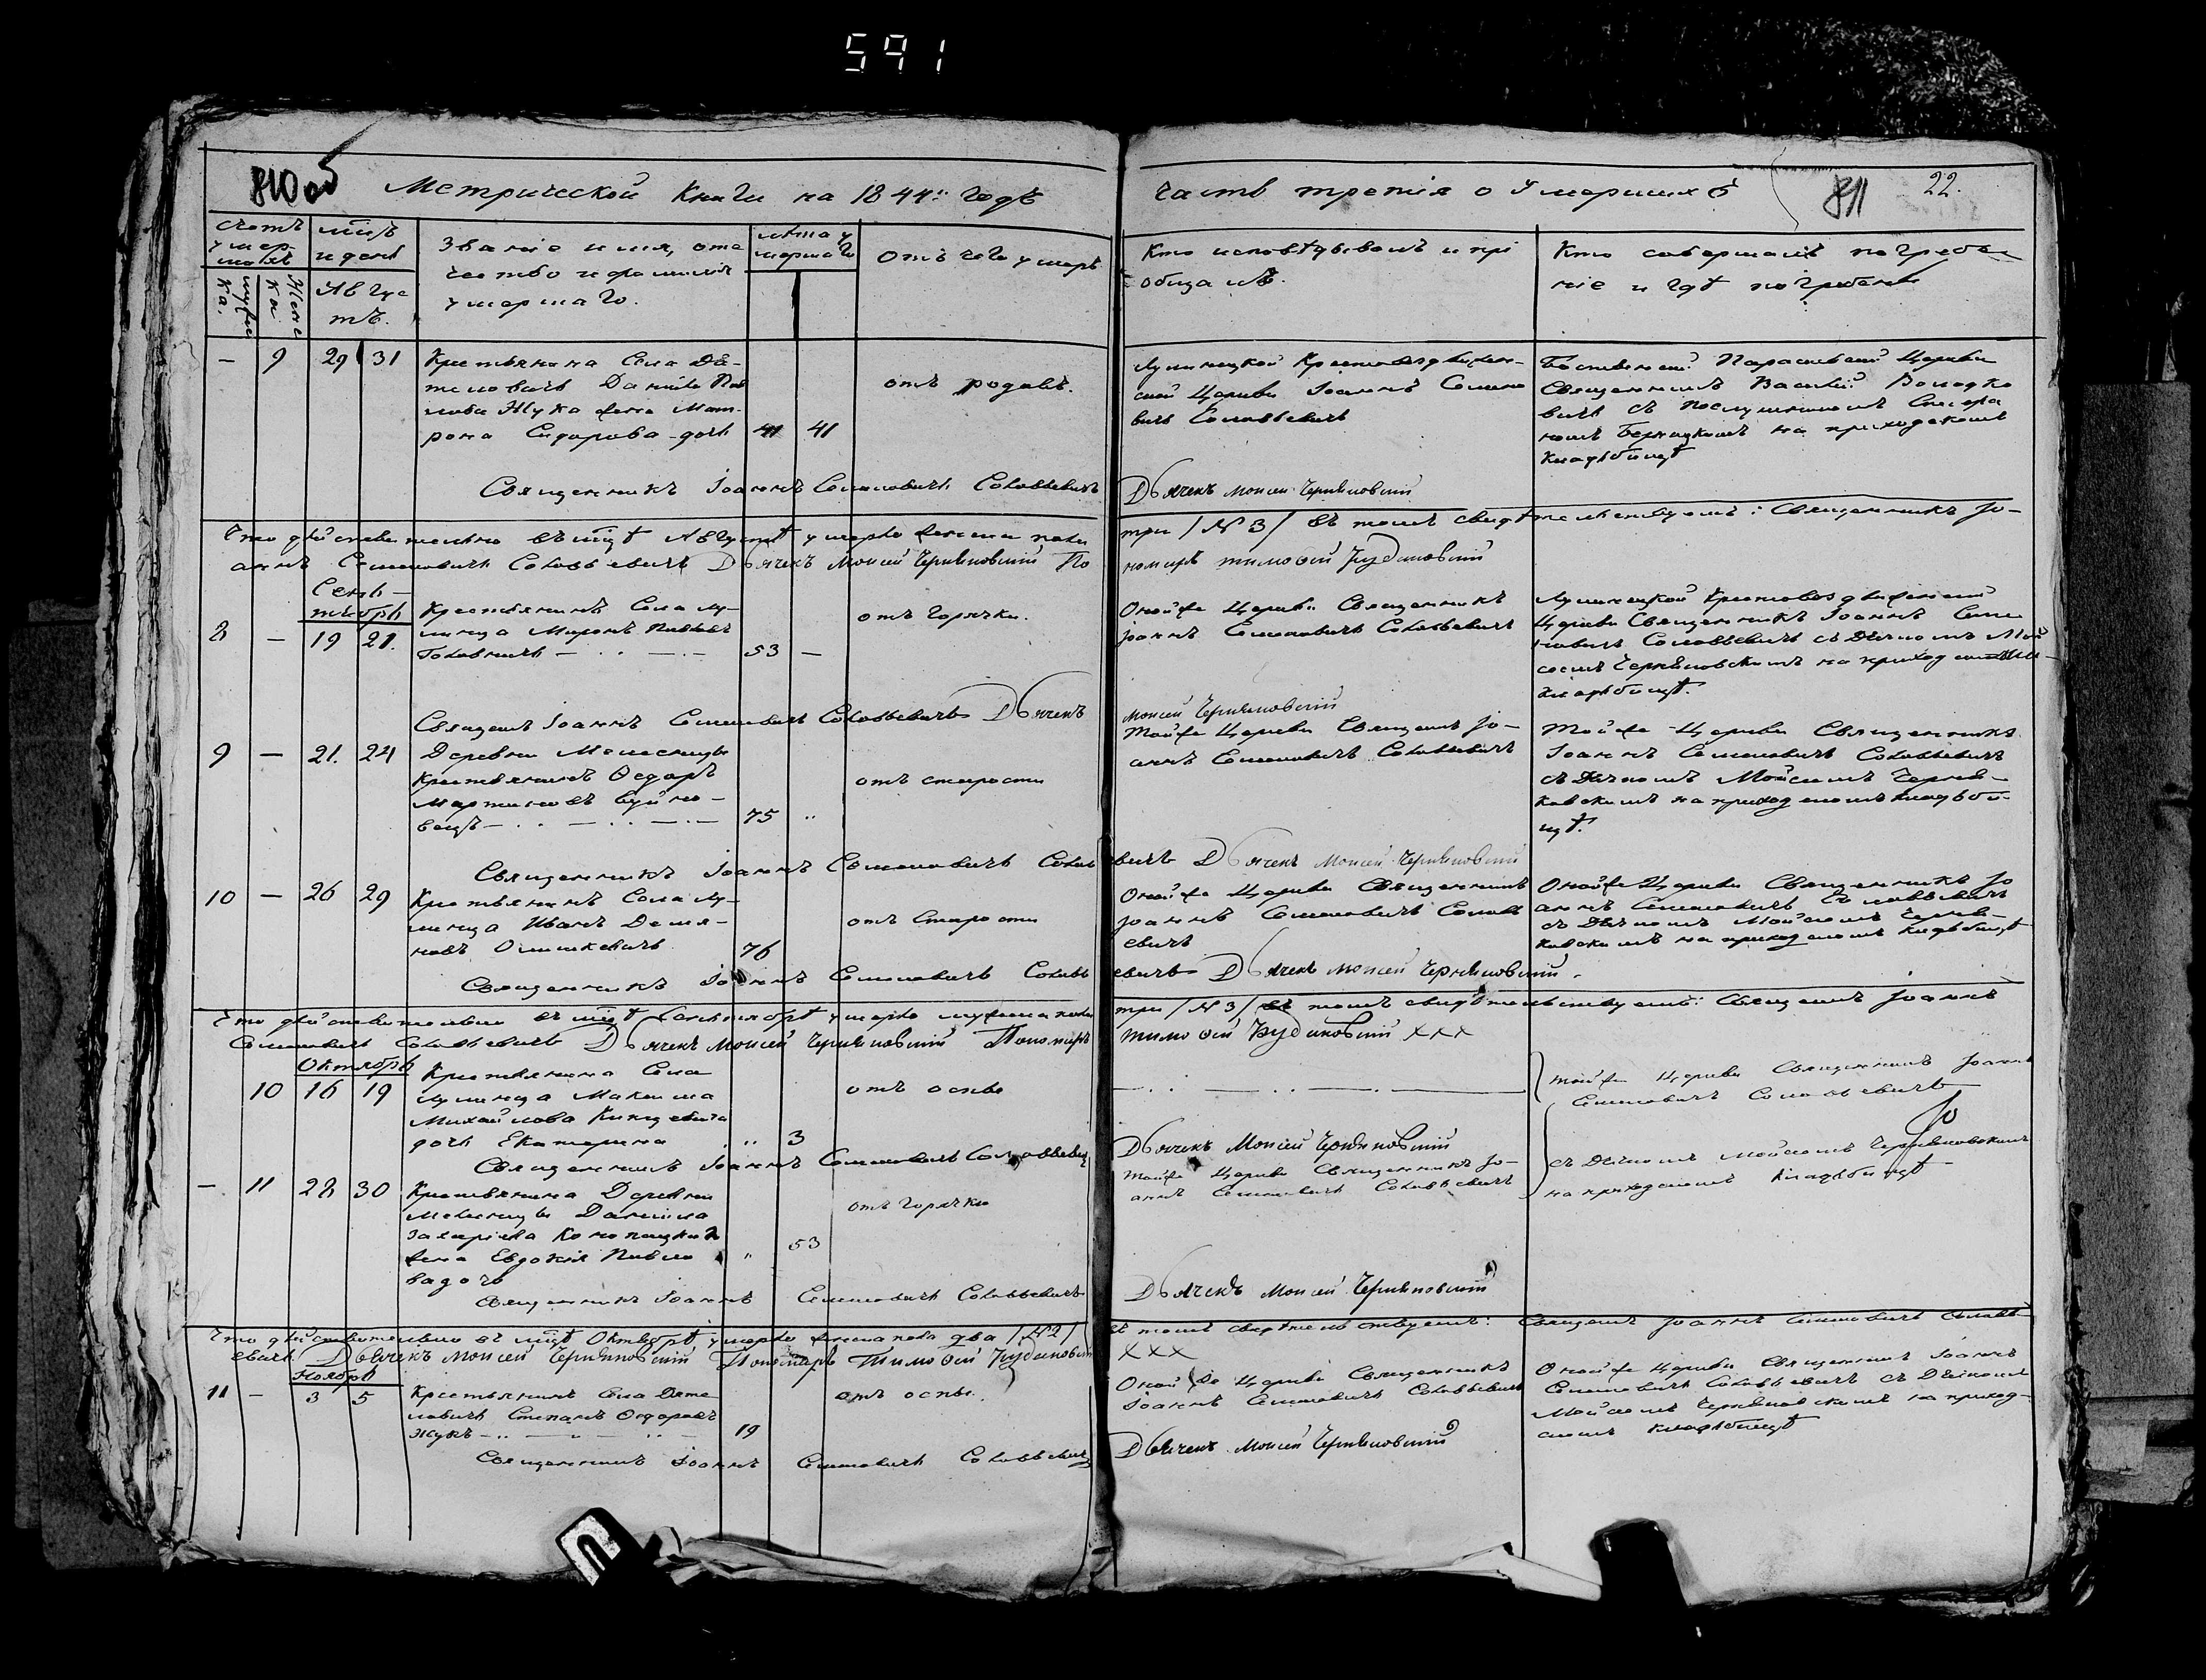 591
810 об
Метрической Книги на 1844й годъ
часть третія о Умершихъ
811
22.
счетъ умер-
шихъ
мцъ
и день
Званіе имя, отче
ство и фамилія
умершаго.
лѣта у
мершаго
Отъ чего умеръ
Кто исповѣдывалъ и прі
общалъ.
Кто совершалъ погребе
ніе и гдѣ погребены
мужеска.
Женска
Авгус
тъ.
— 9 29 31
Крестьянина Села Дя-
теловичь Даніила Пав
лова Жука жена Мат-
рона Сидорова дочь
41
отъ родовъ.
Лунинецкой Крестовоздвижен-
ской Церкви Іоаннъ Симоно
вичь Соловьевичь
Параскевской Церкви
Священникъ Василій
на приходскомъ
Кладбищѣ
Священникъ Іоаннъ Симоновичъ Соловьевичъ
Дьячекъ Моисей Черняковскій
Что дѣйствительно въ мцѣ Августѣ умерло женска пола
три /№ 3/ въ томъ свидѣтельствуемъ: Священникъ Іо-
аннъ Симоновичъ Соловьевичъ Дьячекъ Моисей Черняковскій По
номарь Тимоѳей
Сен-
тябрь
8 — 19 21.
Крестьянинъ Села Лу-
нинца Миронъ Павловъ
Головничъ
53 —
отъ горячки.
Оной же Церкви Священникъ
Іоаннъ Симоновичъ Соловьевичъ
Лунинецкой Крестовоздвиженской
Церкви Священникъ Іоаннъ Симо
новичь Соловьевичъ съ Дьячкомъ Мой
сеемъ Черняковскимъ на приходскомъ
кладбищѣ.
Священъ Іоаннъ Симоновичъ Соловьевичъ Дьячекъ
Моисей Черняковскій
9 — 21. 24
Деревни Мелесницы
Крестьянинъ Ѳедоръ
Мартиновъ
75 "
отъ старости
Тойже Церкви Священъ Іо-
аннъ Симоновичъ Соловьевичъ
Тойже Церкви Священникъ
Іоаннъ Симоновичъ Соловьевичъ
съ Дьячкомъ Мойсеемъ Черня-
ковскимъ на приходскомъ кладби-
щѣ.
Священникъ Іоаннъ Симоновичъ Соловь
евичъ Дьячекъ Моисей Черняковскій
10 — 26 29
Крестьянинъ Села Лу-
нинца Иванъ Демя-
новъ
76
отъ Старости
Оной же Церкви Священникъ
Іоаннъ Симоновичъ Соловь
евичъ
Оной же Церкви Священникъ Іо
аннъ Симоновичъ Соловьевичъ
съ Дьячкомъ Мойсеемъ Черня-
ковскимъ на приходскомъ кладбищѣ
Священникъ Іоаннъ Симоновичъ Соловь
евичъ Дьячекъ Моисей Черняковскій.
Что дѣйствительно въ мцѣ Сентябрѣ умерло мужеска пола
три /№ 3/ въ томъ свидѣтельствуемъ: Священъ Іоаннъ
Симоновичъ Соловьевичъ Дьячекъ Моисей Черняковскій Пономарь
Тимоѳей ххх
Октябрь
10 16 19
Крестьянина Села
Лунинца Максима
Михайлова
дочь Екатерина
" 3
отъ оспы
Тойже Церкви Священникъ Іоаннъ
Симоновичъ Соловьевичъ
Священникъ Іоаннъ Симоновичъ Соловьевичъ
Дьячекъ Моисей Черняковскій
— 11 28 30
Крестьянина Деревни
Мелесницы Даніила
Захаріева
жена Евдокія Павло
ва дочь
" 53
отъ горячки
Тойже Церкви Священникъ Іо-
аннъ Симоновичъ Соловьевичъ
съ Дьячкомъ Мойсеемъ Черняковскимъ
на приходскомъ Кладбищѣ
Священникъ Іоаннъ Симоновичъ Соловьевичъ
Дьячекъ Моисей Черняковскій
Что дѣйствительно въ мцѣ Октябрѣ умерло женска пола два /№2/
въ томъ свидѣтельствуемъ: Священъ Іоаннъ Симоновичъ Соловь-
евичъ Дьячекъ Моисей Черняковскій Пономарь Тимоѳей
ххх
Ноябрь
11 — 3 5
Крестьянинъ Села Дяте
ловичъ Степанъ Ѳедоровъ
Жукъ
19
отъ оспы.
Оной же Церкви Священникъ
Іоаннъ Симоновичъ Соловьевичъ
Оной же Церкви Священникъ Іоаннъ
Симоновичъ Соловьевичъ съ Дьячкомъ
Мойсеемъ Черняковскимъ на приход-
скомъ кладбищѣ
Священникъ Іоаннъ Симоновичъ Соловьевичъ
Дьячекъ Моисей Черняковскій